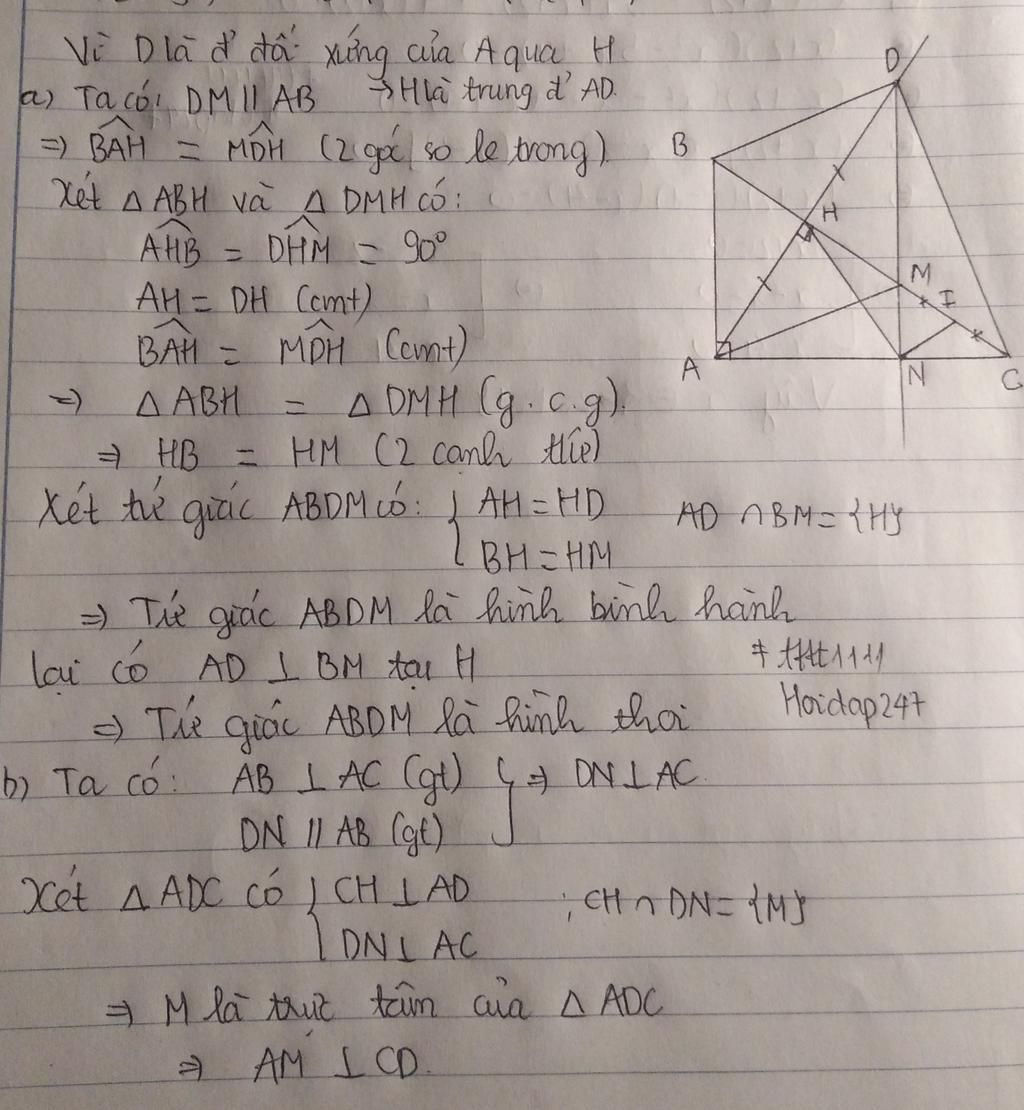 Vì D là đ' đối xứng của A qua H
a) Ta có: DM // AB → H là trung đ' AD.
⇒ BAH = MDH (2 góc so le trong).
Xét △ ABH và △ DMH có:
AHB = DHM = 90°
AH = DH (cmt)
BAH = MDH (cmt)
⇒ △ ABH = △ DMH (g.c.g).
⇒ HB = HM (2 cạnh)
Xét tứ giác ABDM có: { AH = HD AD ∩ BM = {H}
BH = HM
⇒ Tứ giác ABDM là hình bình hành
lại có AD ⊥ BM tại H
⇒ Tứ giác ABDM là hình thoi
Hoidap247
b) Ta có: AB ⊥ AC (gt) } ⇒ DN ⊥ AC.
DN // AB (gt)
Xét △ ADC có { CH ⊥ AD ; CH ∩ DN = {M}
DN ⊥ AC
⇒ M là trực tâm của △ ADC
⇒ AM ⊥ CD.
D
B
H
M
I
A
N
C